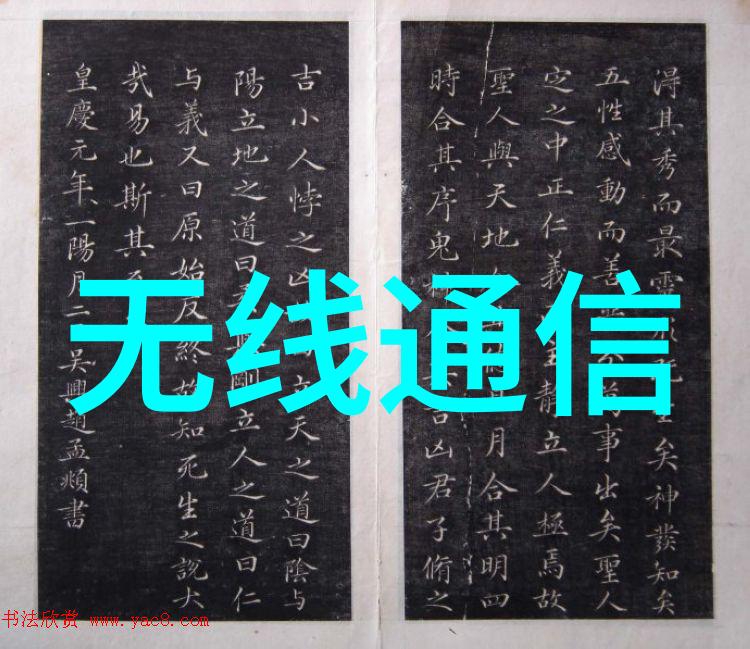 得其秀而最靈既矣神發知矣
五性感動而善分萬事出矣聖人
定之中正仁義主靜立人極焉故
聖人與天地月合其明四
時合其序鬼吉凶君子脩之
吉小人悖之凶立天之道曰陰与
陽立地之道曰剛立人之道曰仁
与義又曰原始反終故知死生之說大
哉易也斯其至
皇慶元年一陽月二吴興趙孟頫書
无线通信
书法欣赏 www.yac8.com